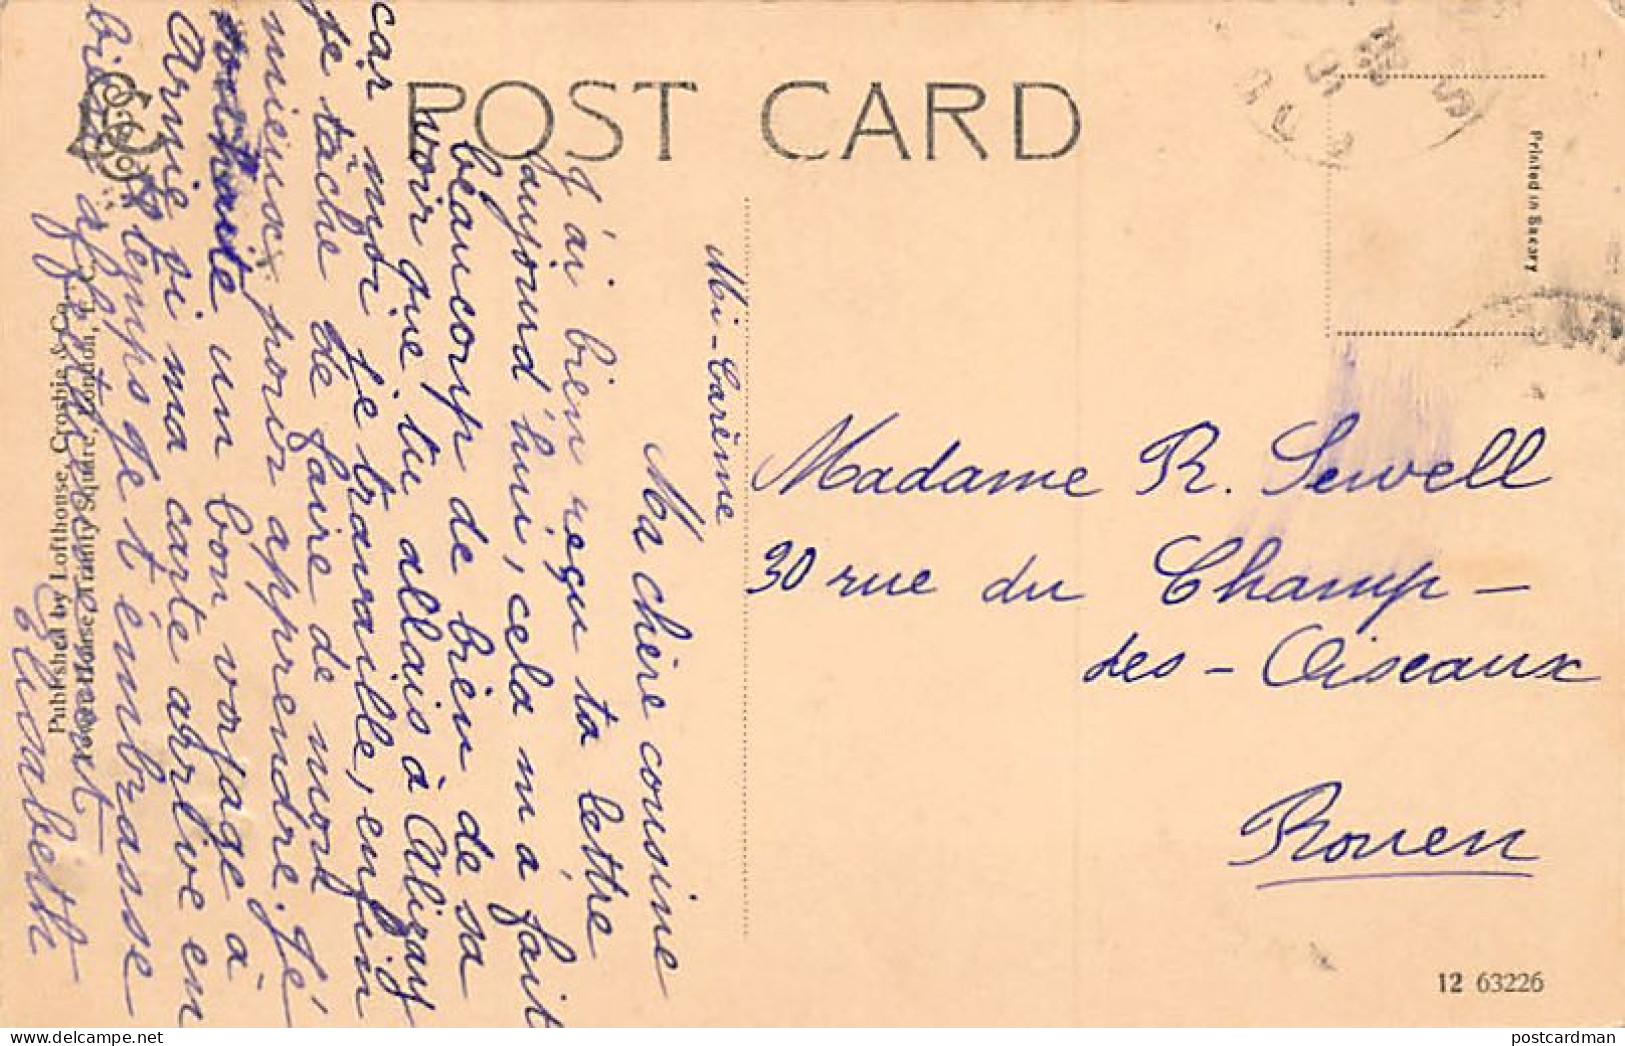 POST CARD
Printed in Saxony
Published by Lofthouse, Crosbie & Co.
Trinity Square, London, E. C.
Mi-Carême
Ma chère cousine
J'ai bien reçu ta lettre
aujourd'hui, cela m'a fait
beaucoup de bien de sa
voir que tu allais à Alizay
car moi je travaille, enfin
je tâche de faire de mon
mieux pour apprendre. Je
souhaite un bon voyage à
Annie si ma carte arrive en
le temps je t'embrasse
bien affectueusement
Elisabeth
Madame R. Sewell
30 rue du Champ-
des-Oiseaux
Rouen
12 63226
postcardman